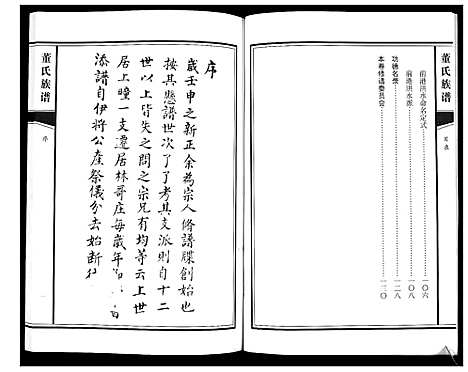 董氏族谱
目录
前港洪水命名定式……一〇六
前港洪水派……一〇八
功德名录……一二八
本卷修谱委员会……一三〇
序
歲壬申之新正余為宗人脩譜牒創始也
按其懸譜世次了了考其支派則自十二
世以上皆失之問之宗兄有均等云上世
居上疃一支遷居林哥庄每歲年
添譜自伊將公產祭儀分去始断
董氏族谱
序